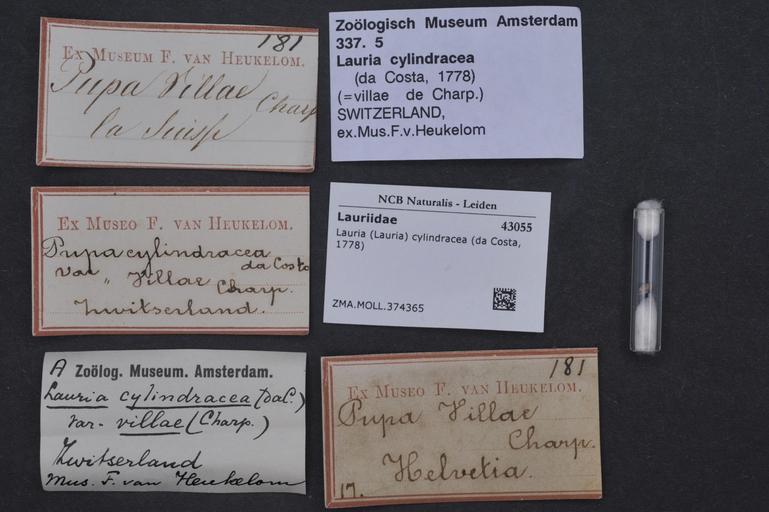 181
Ex Museum F. van Heukelom.
Pupa Villae
Charp
la Suisse
Zoölogisch Museum Amsterdam
337. 5
Lauria cylindracea
(da Costa, 1778)
(=villae de Charp.)
SWITZERLAND,
ex.Mus.F.v.Heukelom
Ex Museo F. van Heukelom.
Pupa cylindracea
da Costa
var „ Villae Charp.
Zwitserland.
NCB Naturalis - Leiden
Lauriidae 43055
Lauria (Lauria) cylindracea (da Costa,
1778)
ZMA.MOLL.374365
A Zoölog. Museum. Amsterdam.
Lauria cylindracea (DaC.)
var. villae (Charp.)
Zwitserland
Mus. F. van Heukelom
181
Ex Museo F. van Heukelom.
Pupa Villae
Charp.
Helvetia.
17.